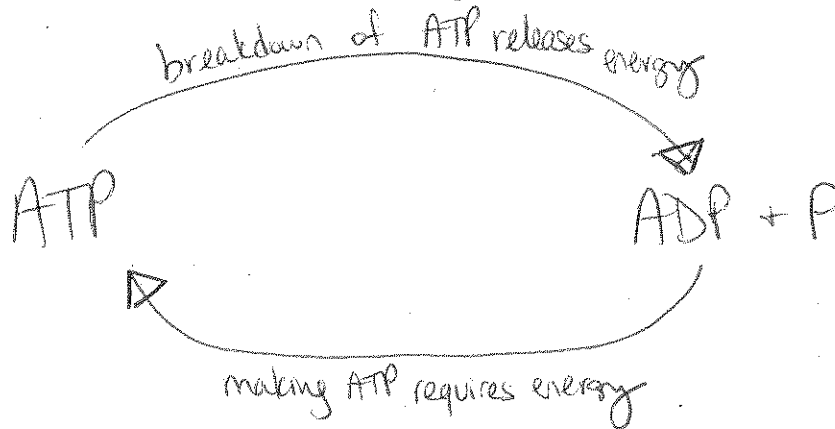 breakdown of ATP releases energy
ATP
ADP + P
making ATP requires energy